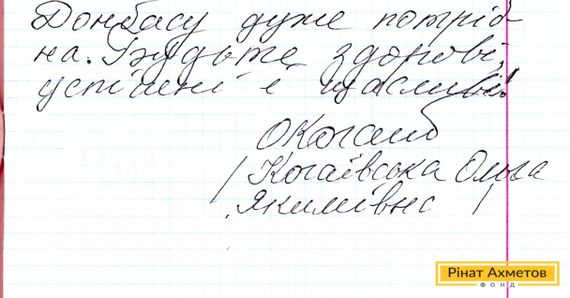 Донбасу дуже потріб-
на. Будьте здорові,
успішні і щасливі!
(Когаївська Ольга
Якимівна)
Рінат Ахметов
ФОНД